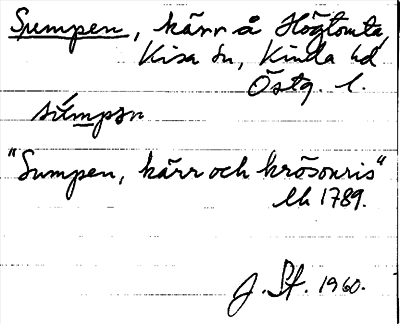 Sumpen, kärr å Högtomta,
Kisa sn, Kinda hd
Östg. l.
súmpən
"Sumpen, kärr och krösonris"
lh 1789.
J. St. 1960.